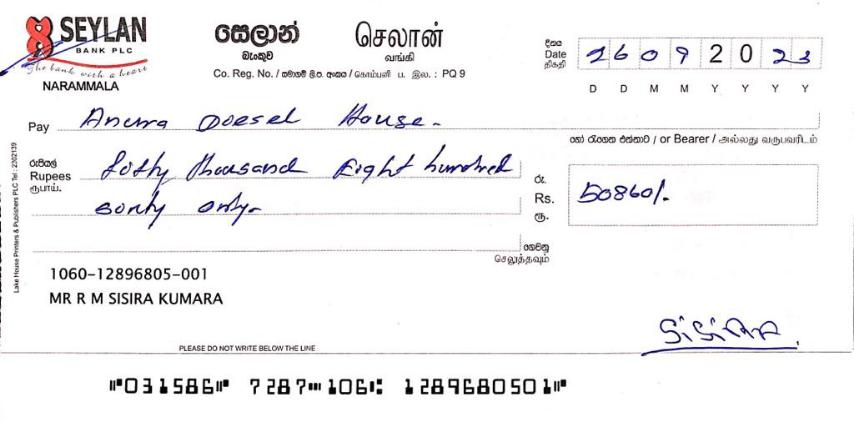 SEYLAN
BANK PLC
The bank with a heart
NARAMMALA
සෙලාන් செலான்
බැංකුව வங்கி
Co. Reg. No. / සමාගම් ලි.ප. අංකය / கொம்பனி ப. இல. : PQ 9
දිනය
Date 26 09 20 23
திகதி
D D M M Y Y Y Y
Pay Anura Diesel House -
හෝ රැගෙන එන්නාට / or Bearer / அல்லது வருபவரிடம்
රුපියල්
Rupees fifty thousand Eight hundred
ரூபாய்.
sixty only -
රු.
Rs. 50860/-
ரூ.
ගෙවනු
செலுத்தவும்
1060-12896805-001
MR R M SISIRA KUMARA
Sisira
PLEASE DO NOT WRITE BELOW THE LINE
⑈031586⑈ 7287⑉106⑆ 1289680501⑈
Lake House Printers & Publishers PLC Tel : 2302139